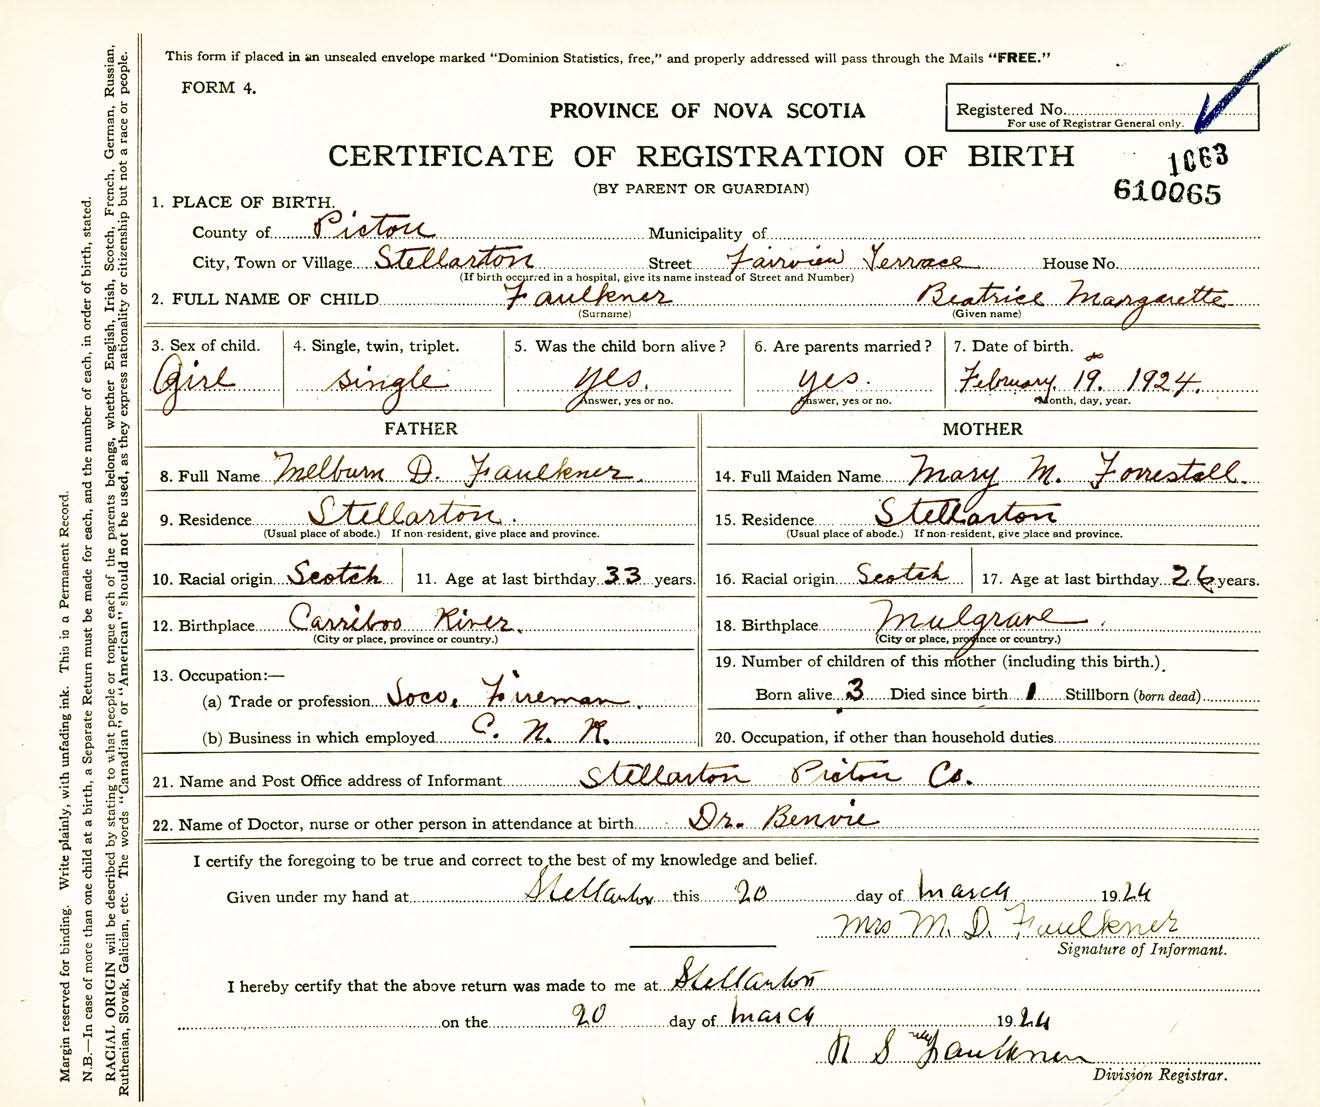 This form if placed in an unsealed envelope marked "Dominion Statistics, free," and properly addressed will pass through the Mails "FREE."
FORM 4.
PROVINCE OF NOVA SCOTIA
Registered No.
For use of Registrar General only.
CERTIFICATE OF REGISTRATION OF BIRTH
1063
(BY PARENT OR GUARDIAN)
610065
1. PLACE OF BIRTH.
County of Pictou Municipality of
City, Town or Village Stellarton Street Fairview Terrace House No.
(If birth occurred in a hospital, give its name instead of Street and Number)
2. FULL NAME OF CHILD Faulkner Beatrice Margarette
(Surname) (Given name)
3. Sex of child. 4. Single, twin, triplet. 5. Was the child born alive? 6. Are parents married? 7. Date of birth.
Girl single yes. yes. February 19. 1924.
Answer, yes or no. Answer, yes or no. Month, day, year.
FATHER MOTHER
8. Full Name Melburn D. Faulkner. 14. Full Maiden Name Mary M. Forrestall.
9. Residence Stellarton. 15. Residence Stellarton
(Usual place of abode.) If non-resident, give place and province. (Usual place of abode.) If non-resident, give place and province.
10. Racial origin Scotch 11. Age at last birthday 33 years. 16. Racial origin Scotch 17. Age at last birthday 26 years.
12. Birthplace Carriboo River. 18. Birthplace Mulgrave.
(City or place, province or country.) (City or place, province or country.)
13. Occupation:— 19. Number of children of this mother (including this birth.)
(a) Trade or profession Loco. Fireman. Born alive 3 Died since birth 1 Stillborn (born dead)
(b) Business in which employed C. N. R. 20. Occupation, if other than household duties
21. Name and Post Office address of Informant Stellarton Pictou Co.
22. Name of Doctor, nurse or other person in attendance at birth Dr. Benvie
I certify the foregoing to be true and correct to the best of my knowledge and belief.
Given under my hand at Stellarton this 20 day of march 1924
Mrs M. D. Faulkner
Signature of Informant.
I hereby certify that the above return was made to me at Stellarton
on the 20 day of march 1924
Faulkner
Division Registrar.
Margin reserved for binding. Write plainly, with unfading ink. This is a Permanent Record.
N.B.—In case of more than one child at a birth, a Separate Return must be made for each, and the number of each, in order of birth, stated.
RACIAL ORIGIN will be described by stating to what people or tongue each of the parents belongs, whether English, Irish, Scotch, French, German, Russian,
Ruthenian, Slovak, Galician, etc. The words "Canadian" or "American" should not be used, as they express nationality or citizenship but not a race or people.